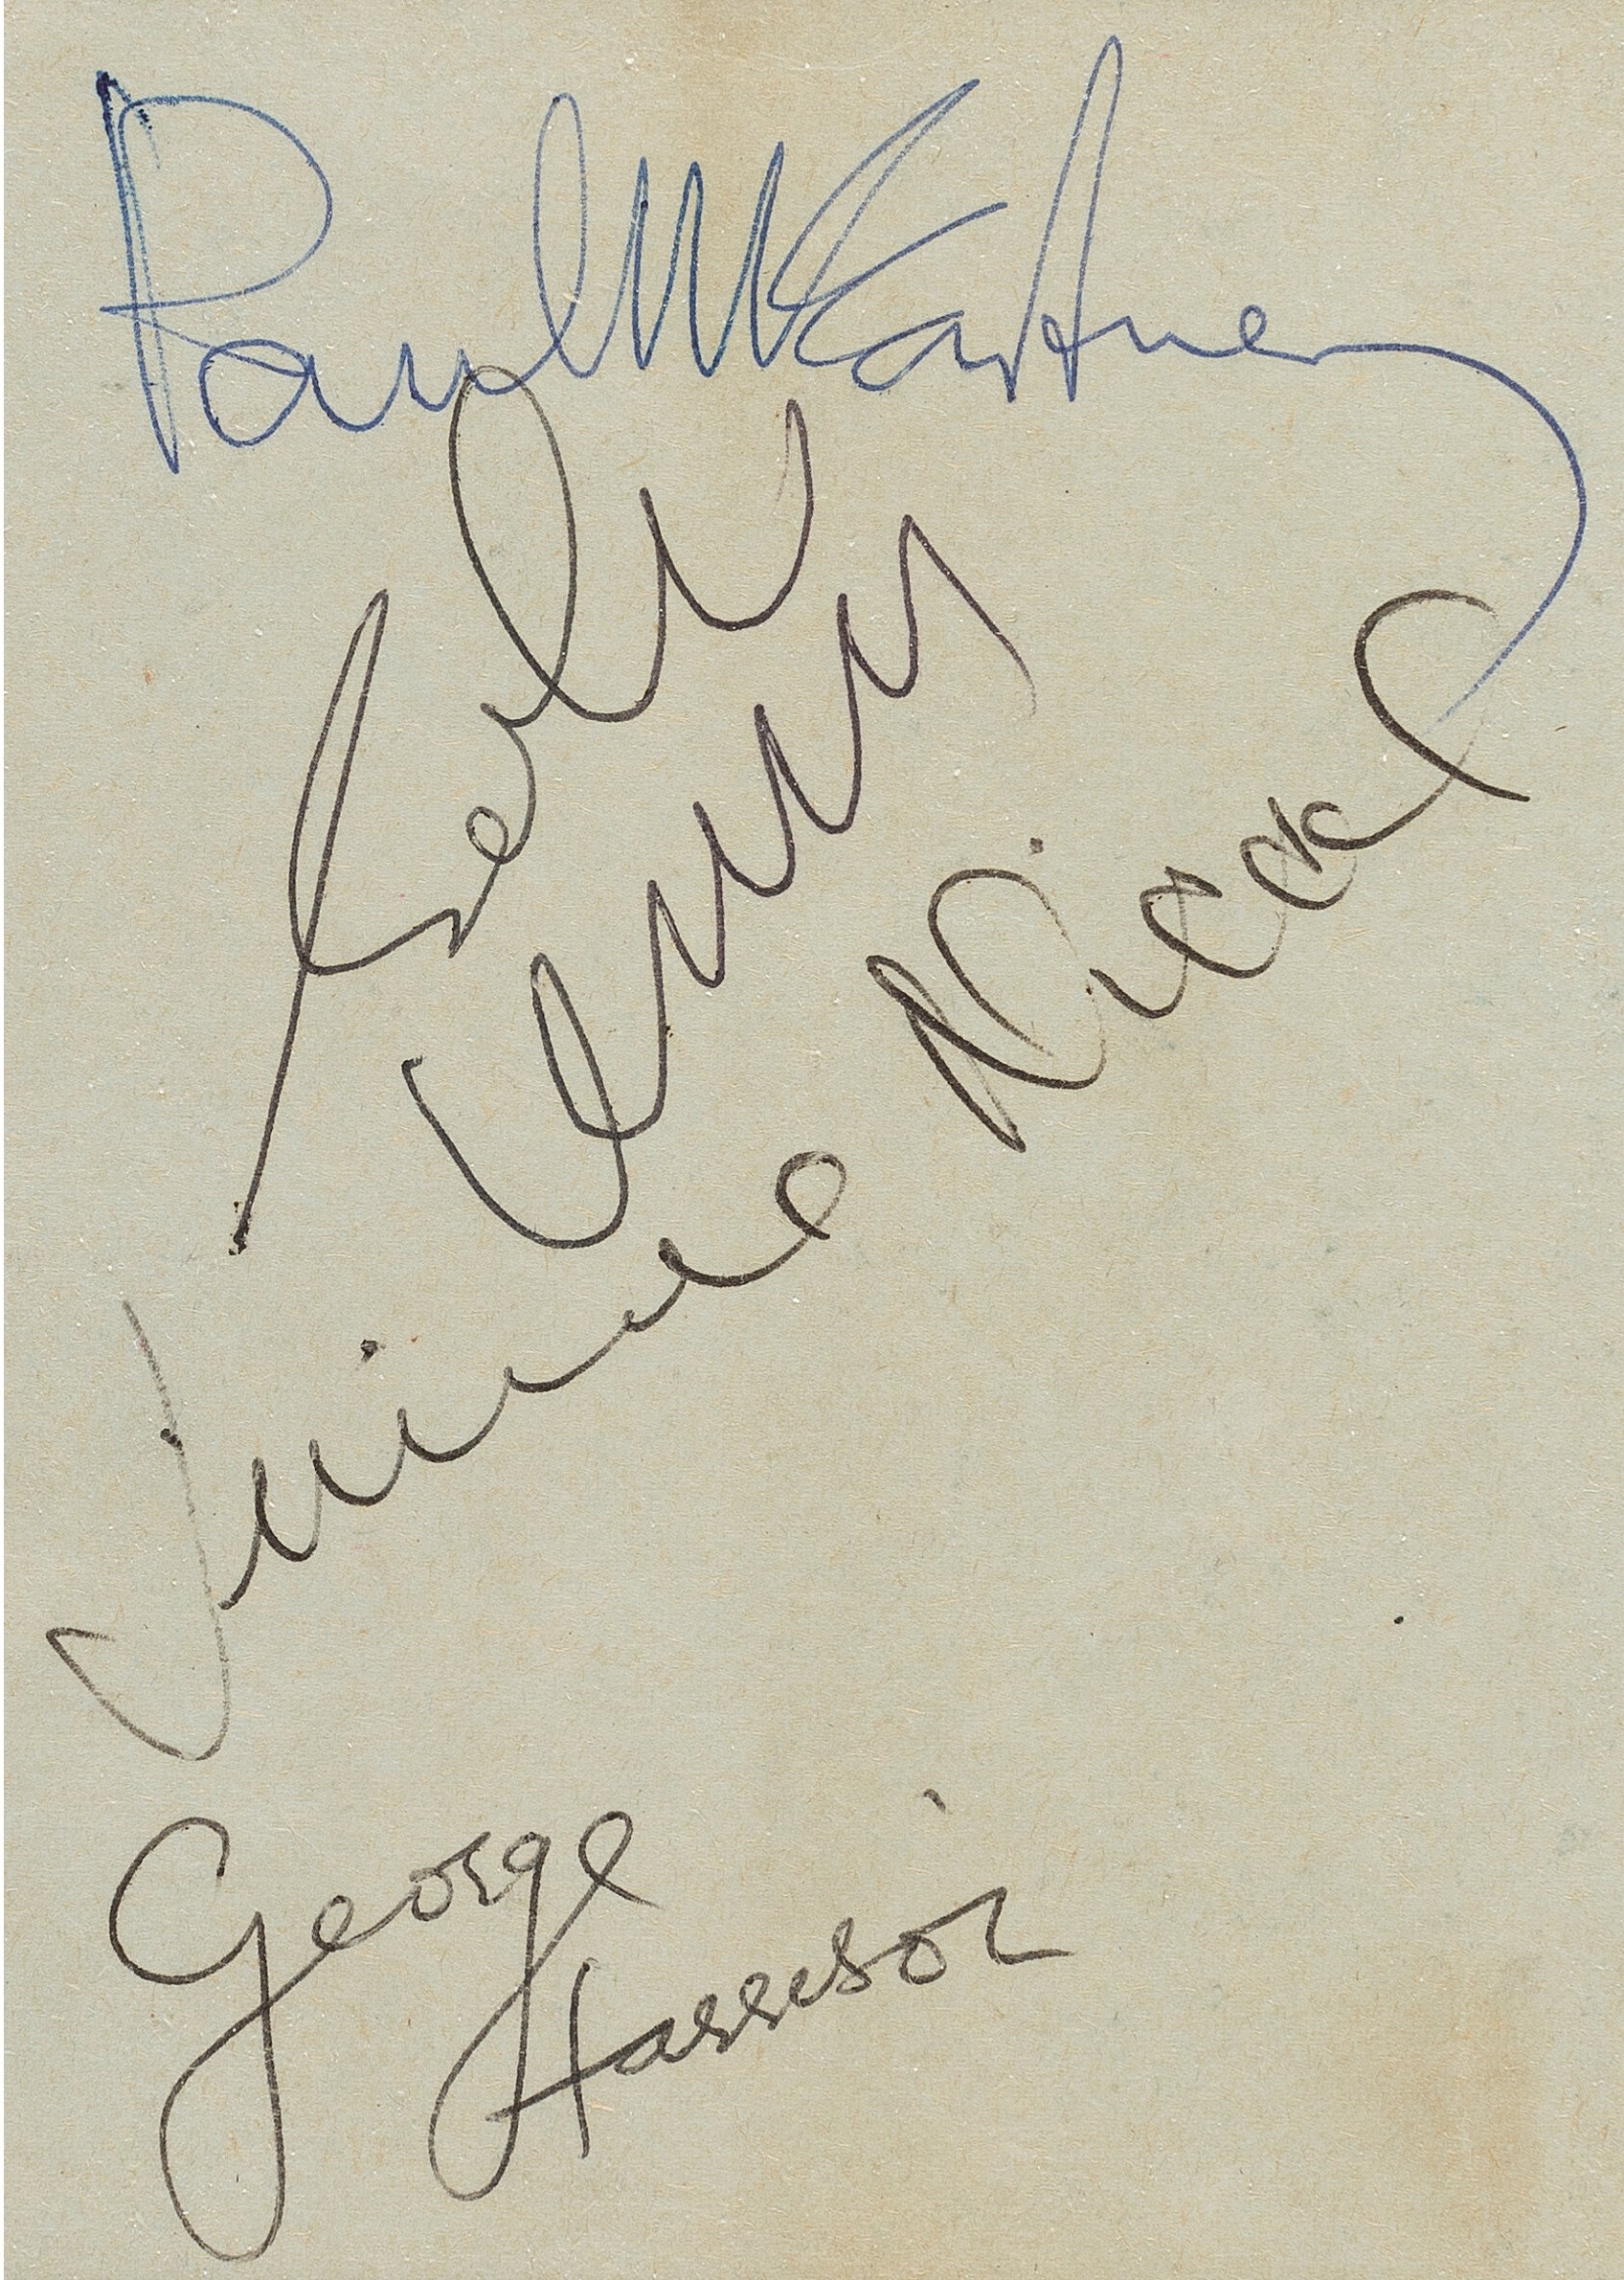 Paul McCartney
John
Lennon
Jimmie Nicol
George
Harrison